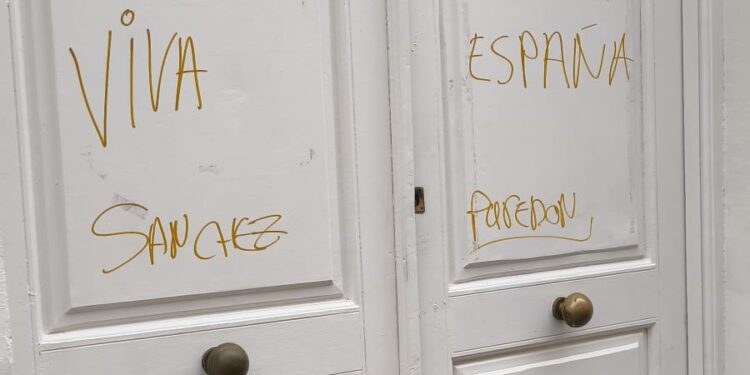 VIVA ESPAÑA
SANCHEZ PAREDON